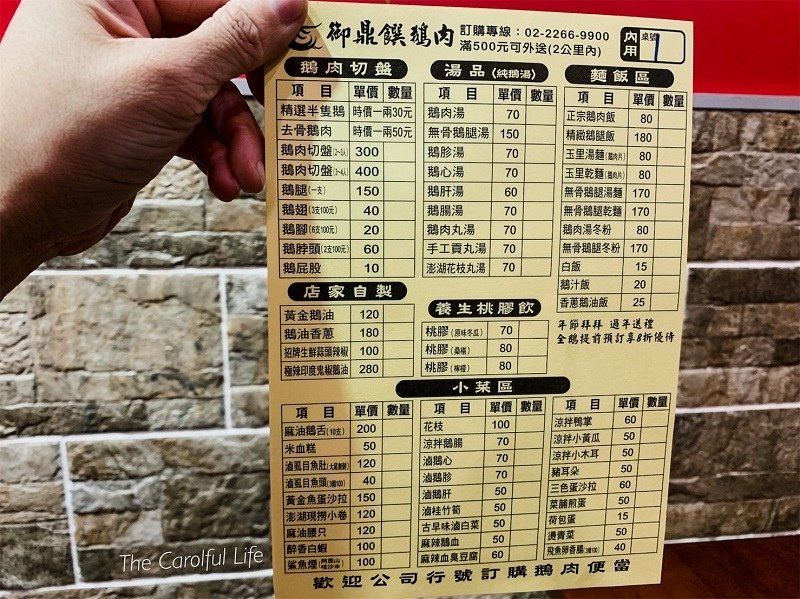 御鼎饌鵝肉
訂購專線：02-2266-9900
滿500元可外送(2公里內)
內用 桌號 1
鵝肉切盤
項目 單價 數量
精選半隻鵝 時價一兩30元
去骨鵝肉 時價一兩50元
鵝肉切盤(2~3人) 300
鵝肉切盤(3~4人) 400
鵝腿(一支) 150
鵝翅(3支100元) 40
鵝腳(6支100元) 20
鵝脖頭(2支100元) 60
鵝屁股 10
湯品(純鵝湯)
項目 單價 數量
鵝肉湯 70
無骨鵝腿湯 150
鵝胗湯 70
鵝心湯 70
鵝肝湯 60
鵝腸湯 70
鵝肉丸湯 70
手工貢丸湯 70
澎湖花枝丸湯 70
麵飯區
項目 單價 數量
正宗鵝肉飯 80
精緻鵝腿飯 180
玉里湯麵(鵝肉片) 80
玉里乾麵(鵝肉片) 80
無骨鵝腿湯麵 170
無骨鵝腿乾麵 170
鵝肉湯冬粉 80
無骨鵝腿冬粉 170
白飯 15
鵝汁飯 20
香蔥鵝油飯 25
店家自製
黃金鵝油 120
鵝油香蔥 180
招牌生鮮蒜頭辣椒 100
極辣印度鬼椒鵝油 280
養生桃膠飲
桃膠(原味冬瓜) 70
桃膠(桑椹) 80
桃膠(檸檬) 80
年節拜拜 過年送禮
全鵝提前預訂享8折優待
小菜區
項目 單價 數量
麻油鵝舌(10支) 200
米血糕 50
滷虱目魚肚 120
滷虱目魚頭(3個100) 40
黃金魚蛋沙拉 150
澎湖現撈小卷 120
麻油腰只 120
醇香白蝦 100
鯊魚煙 100
項目 單價 數量
花枝 100
涼拌鵝腸 70
滷鵝心 70
滷鵝胗 70
滷鵝肝 50
滷桂竹筍 50
古早味滷白菜 50
麻辣鵝血 50
麻辣血臭豆腐 60
項目 單價 數量
涼拌鴨掌 60
涼拌小黃瓜 50
涼拌小木耳 50
豬耳朵 50
三色蛋沙拉 60
菜脯煎蛋 50
荷包蛋 15
燙青菜 50
飛魚卵香腸(3條100) 40
歡迎公司行號訂購鵝肉便當
The Carolful Life